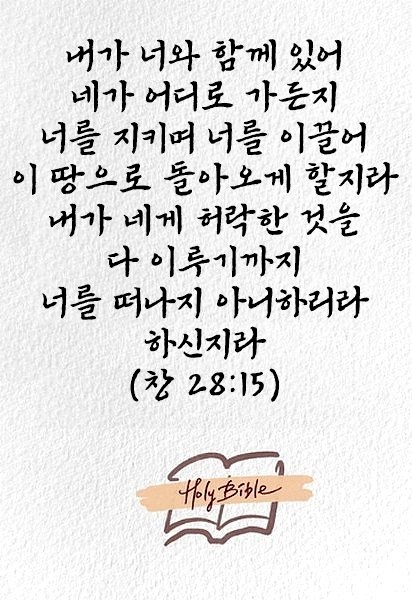 내가 너와 함께 있어
네가 어디로 가든지
너를 지키며 너를 이끌어
이 땅으로 돌아오게 할지라
내가 네게 허락한 것을
다 이루기까지
너를 떠나지 아니하리라
하신지라
(창 28:15)
Holy Bible